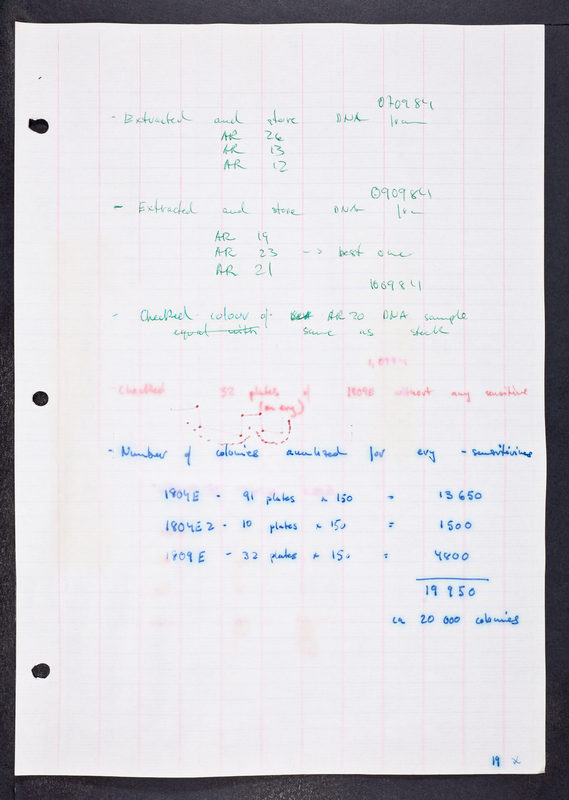 070984
- Extracted and store DNA from
AR 26
AR 13
AR 12
090984
- Extracted and store DNA from
AR 19
AR 23 -> best one
AR 21
100984
- Checked colour of AR20 DNA sample
equal with same as stock
Checked 32 plates of 1809E without any sensitive
(on ery)
- Number of colonies analized for ery - sensitivines
1804E - 91 plates x 150 = 13 650
1804E2 - 10 plates x 150 = 1500
1809E - 32 plates x 150 = 4800
19 950
ca 20 000 colonies
19 x